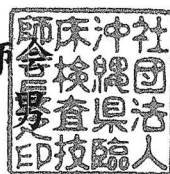 社団法人
沖縄県臨
床検査技
師会印
男